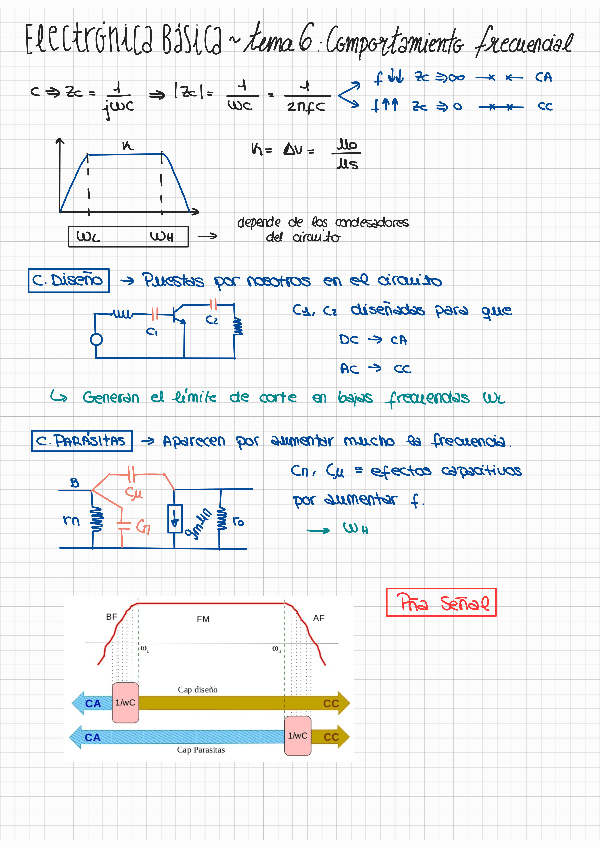 Electrónica Básica ~ tema 6: Comportamiento frecuencial
C ⇒ Zc = 1/jωC ⇒ |Zc| = 1/ωC = 1/2πfC
f ↓↓ Zc ⇒ ∞ CA
f ↑↑ Zc ⇒ 0 CC
K
K = Δv = μo/μs
ωL ωH → depende de los condesadores
del circuito
C. Diseño → Puestas por nosotros en el circuito
C1 C2
C1, C2 diseñadas para que
DC → CA
AC → CC
↳ Generan el límite de corte en bajas frecuencias ωL
C. PARÁSITAS → Aparecen por aumentar mucho la frecuencia.
B Cμ
rπ Cπ gm·μπ ro
Cπ, Cμ = efectos capacitivos
por aumentar f.
→ ωH
Pña Señal
BF FM AF
CA 1/wC Cap diseño CC
CA Cap Parasitas 1/wC CC